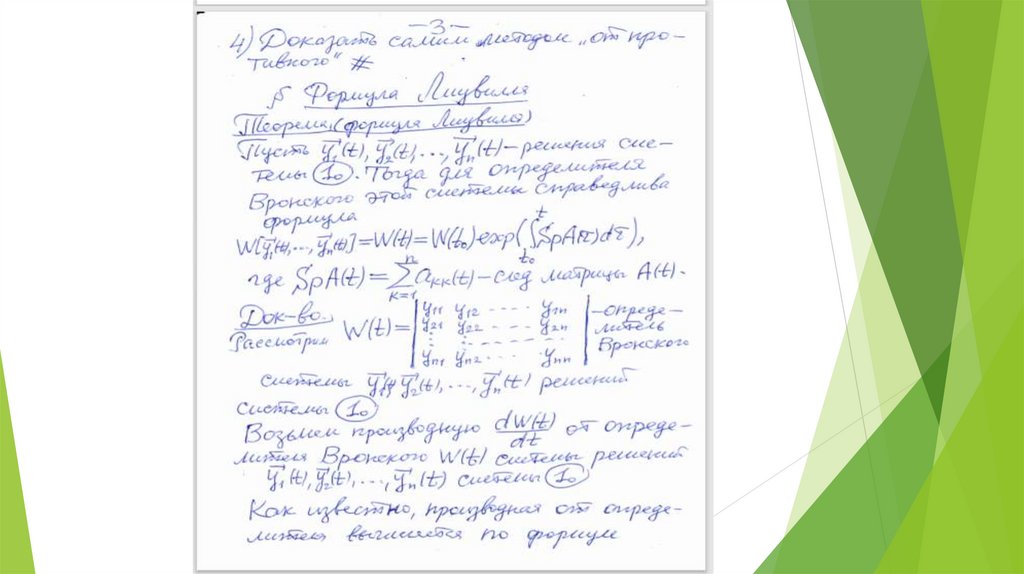 -3-
4) Доказать самим методом „от про-
тивного“ #
§ Формула Лиувилля
Теорема (формула Лиувилля)
Пусть y⃗₁(t), y⃗₂(t), ..., y⃗ₙ(t) – решения сис-
темы (1₀). Тогда для определителя
Вронского этой системы справедлива
формула
W[y⃗₁(t),..., y⃗ₙ(t)] = W(t) = W(t₀) exp(∫ₜ₀ᵗ SpA(τ)dτ),
где SpA(t) = ∑ₖ₌₁ⁿ aₖₖ(t) – след матрицы A(t).
Док-во.
Рассмотрим W(t) = | y₁₁ y₁₂ ---- y₁ₙ | – опреде-
| y₂₁ y₂₂ ---- y₂ₙ | литель
| yₙ₁ yₙ₂ ... yₙₙ | Вронского
системы y⃗₁(t), y⃗₂(t), ..., y⃗ₙ(t) решений
системы (1₀)
Возьмем производную dW(t)/dt от опреде-
лителя Вронского W(t) системы решений
y⃗₁(t), y⃗₂(t), ..., y⃗ₙ(t) системы (1₀)
Как известно, производная от опреде-
лителя вычисляется по формуле